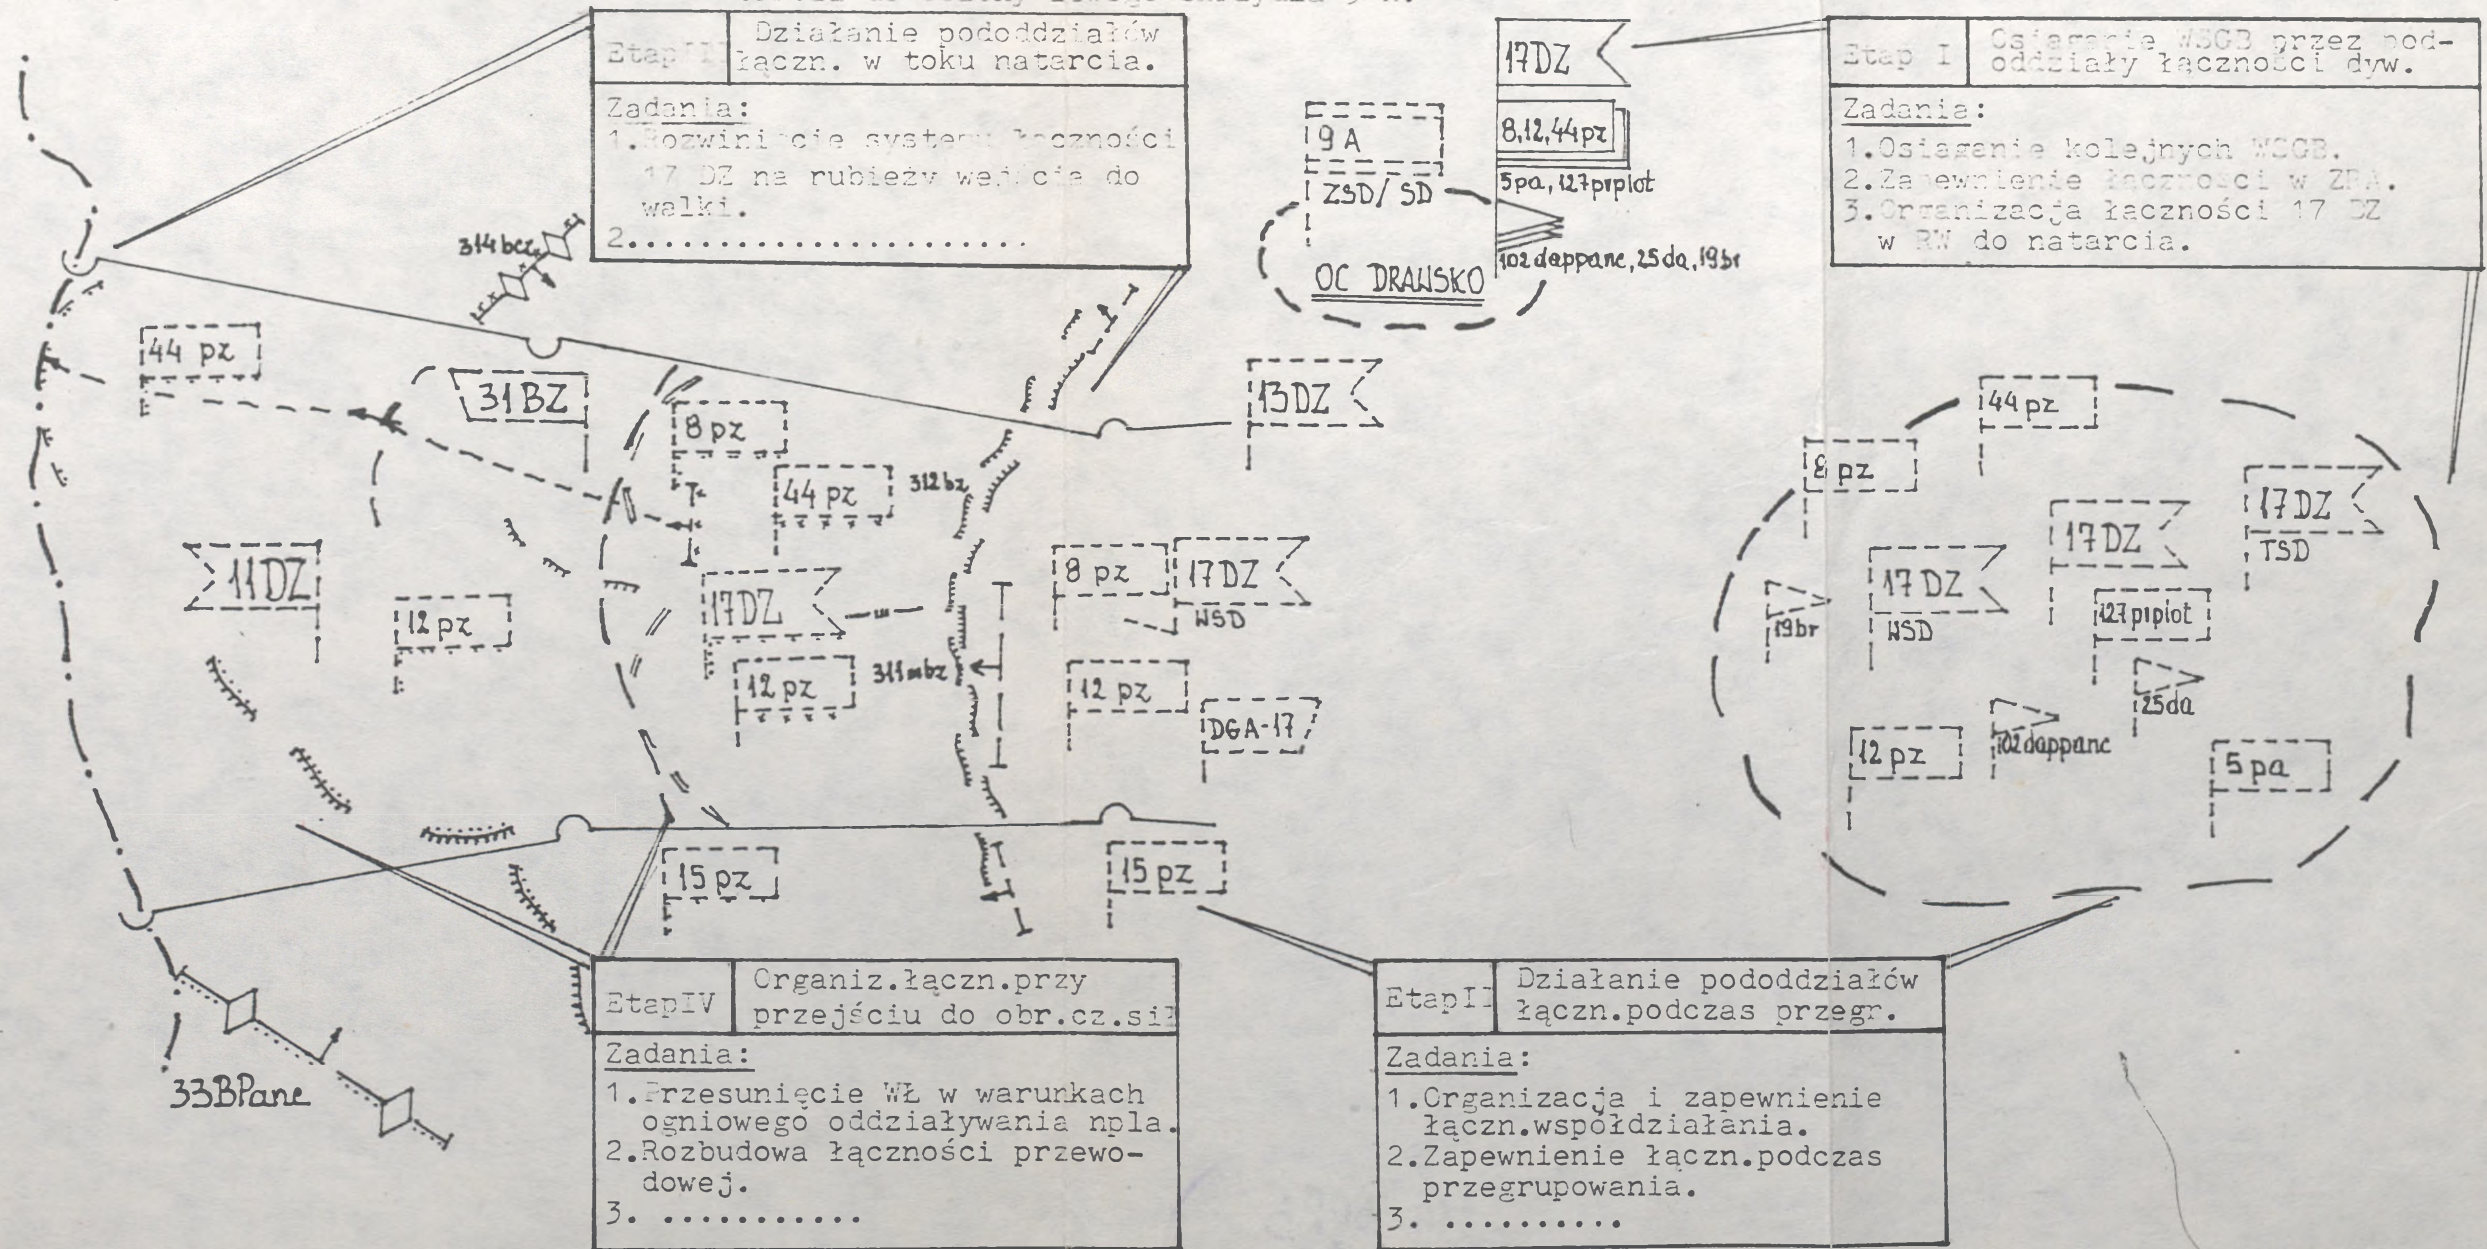 Etap III
Działanie pododdziałów
łączn. w toku natarcia.
Zadania:
1.Rozwinięcie systemu łączności
17 DZ na rubieży wejścia do
walki.
2......................
17DZ
8,12,44pz
5pa, 127prplot
102dappanc, 25da, 19br
9A
ZSD/SD
OC DRAWSKO
Etap I
Osiąganie WSGB przez pod-
oddziały łączności dyw.
Zadania:
1.Osiąganie kolejnych WSGB.
2.Zapewnienie łączności w ZRA.
3.Organizacja łączności 17 DZ
w RW do natarcia.
314bcz
44 pz
31BZ
8 pz
44 pz
312bz
13DZ
11DZ
12 pz
17DZ
12 pz
8 pz
17DZ
WSD
12 pz
DGA-17
15 pz
15 pz
33BPanc
44 pz
8 pz
17DZ
TSD
17DZ
17DZ
WSD
19br
127prplot
25da
102dappanc
12 pz
5pa
Etap IV
Organiz.łączn.przy
przejściu do obr.cz.sił
Zadania:
1.Przesunięcie WŁ w warunkach
ogniowego oddziaływania npla.
2.Rozbudowa łączności przewo-
dowej.
3. ...........
Etap II
Działanie pododdziałów
łączn.podczas przegr.
Zadania:
1.Organizacja i zapewnienie
łączn.współdziałania.
2.Zapewnienie łączn.podczas
przegrupowania.
3. ..........